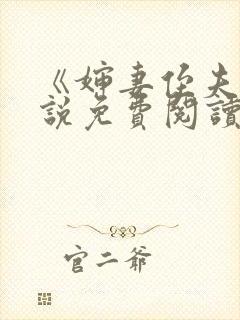 《婶妻侄夫
說免費閱讀
官二爷